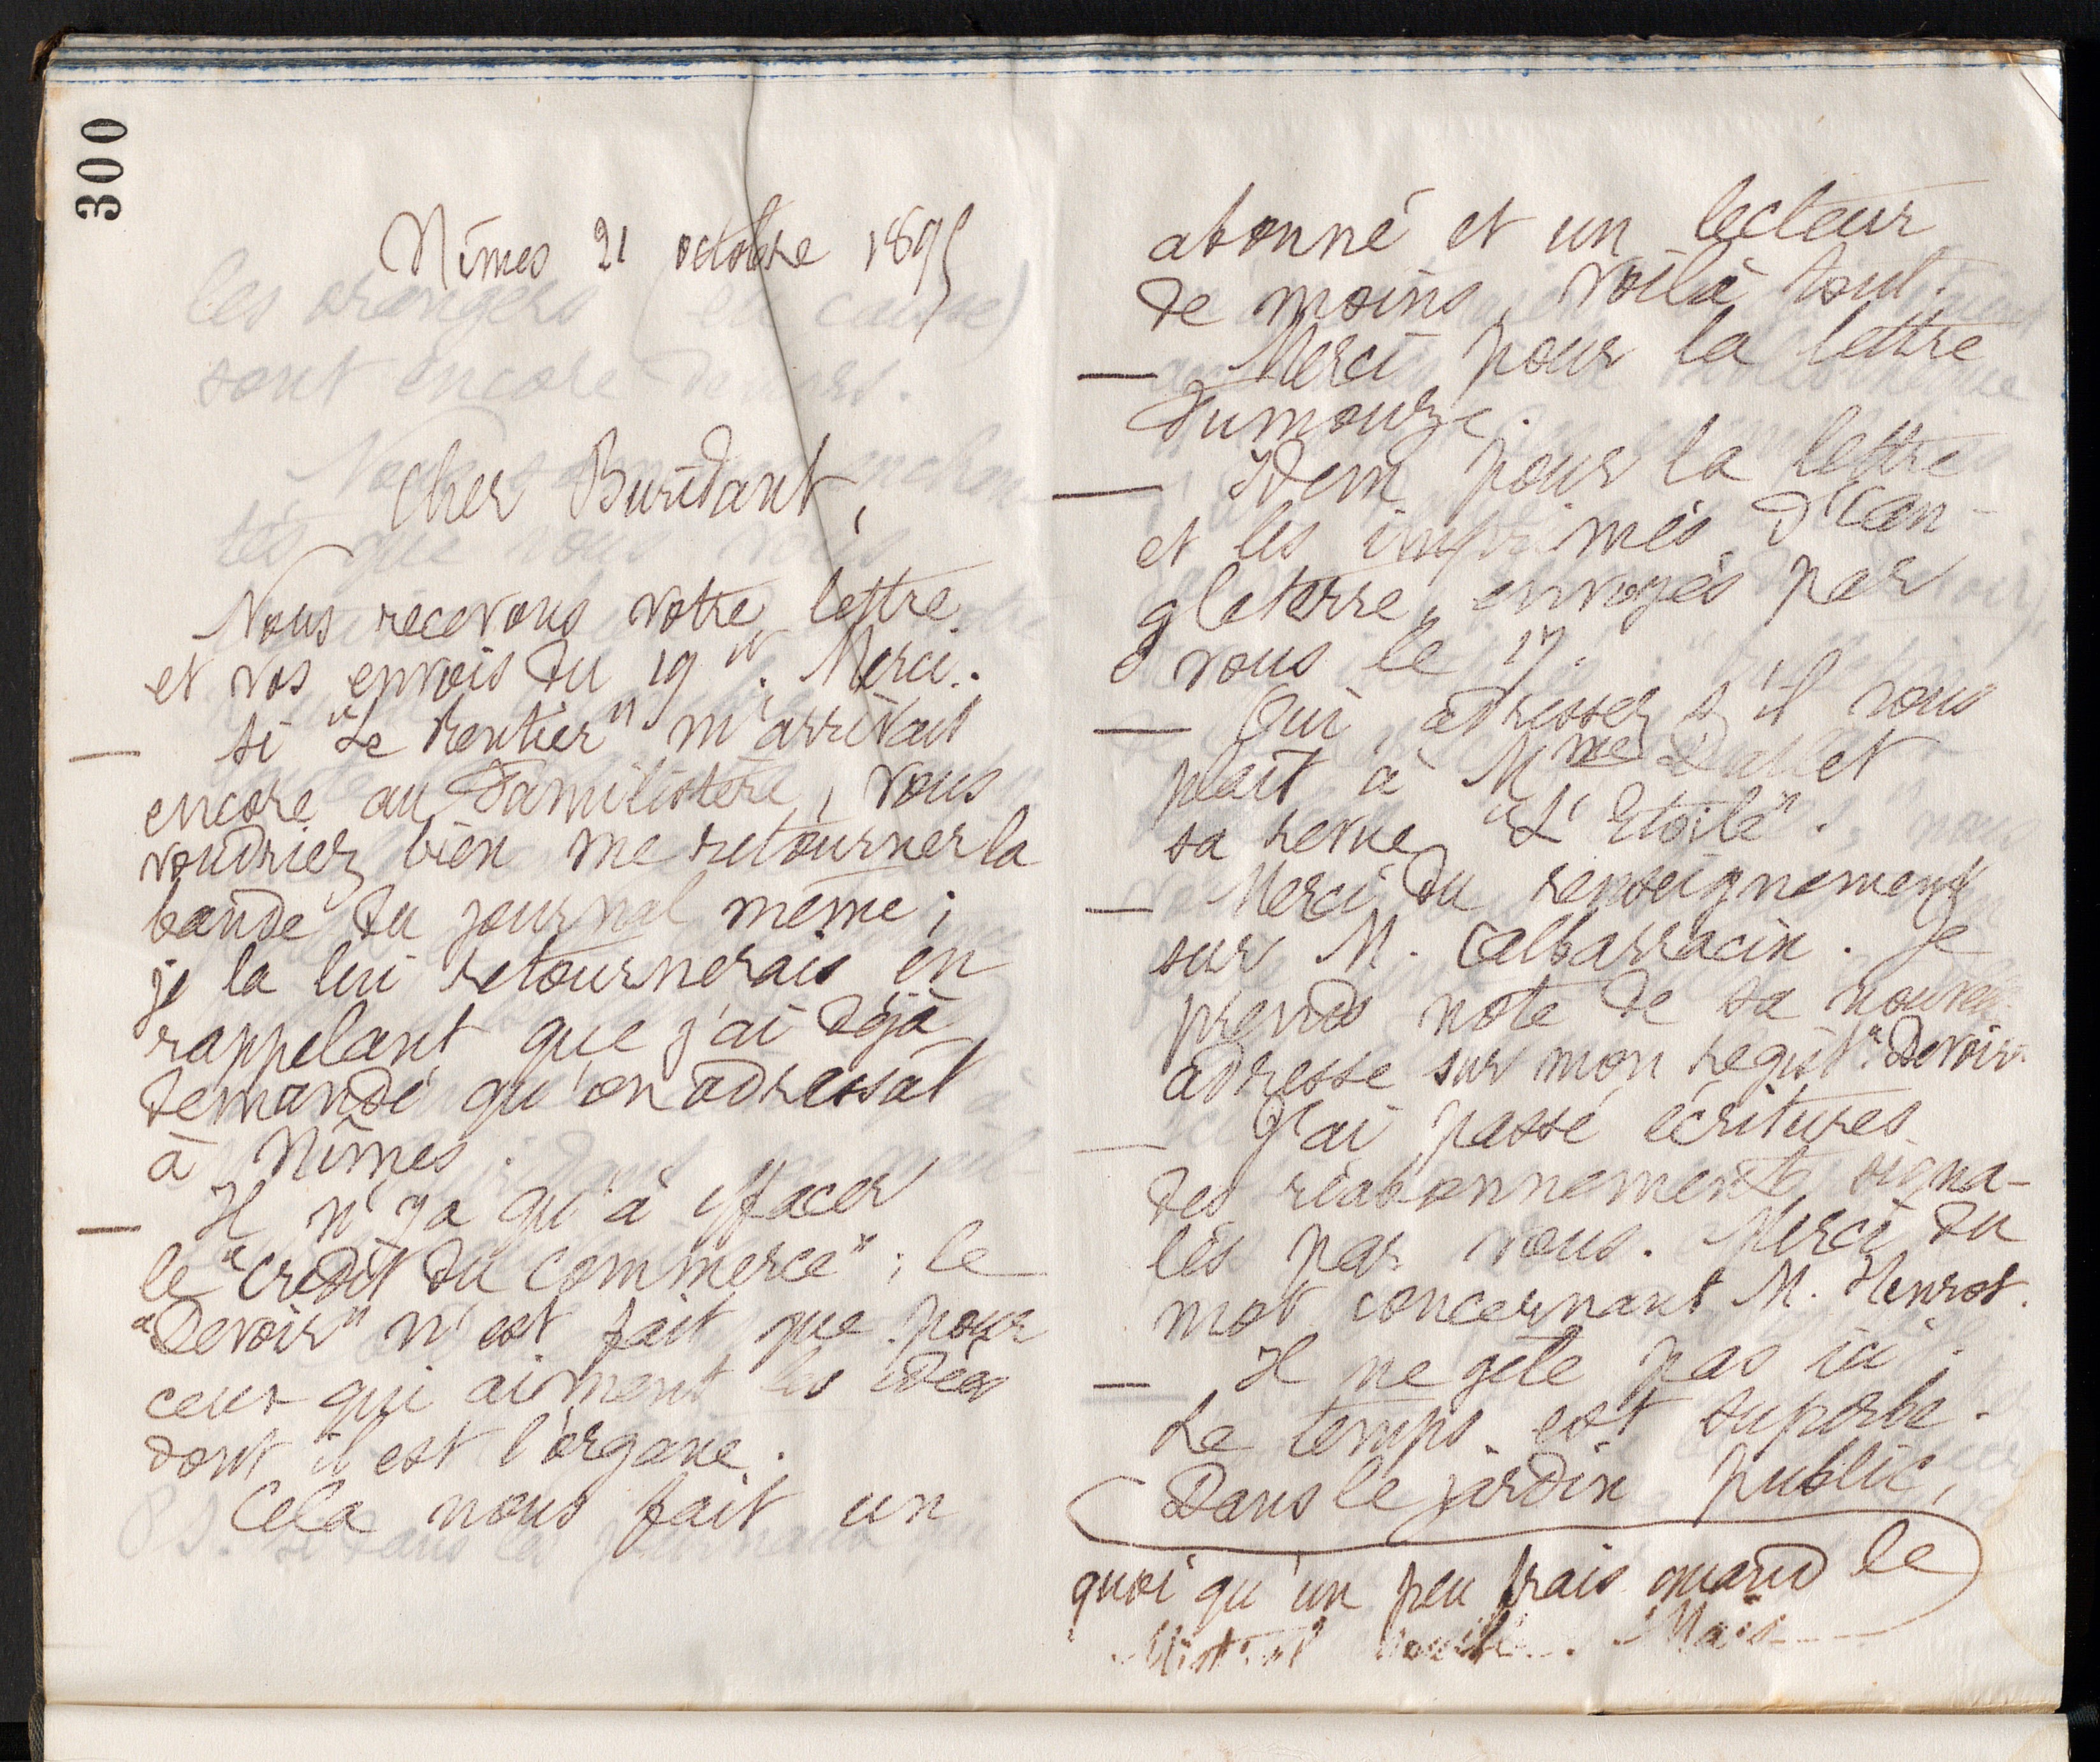 300
Nîmes 21 octobre 1895
Cher Buridant,
Nous recevons votre lettre
et vos envois du 19 ct. Merci.
— Si "Le Rentier" m'arrivait
encore au Familistère, vous
voudriez bien me retourner la
bande du journal même;
je la lui retournerais en
rappelant que j'ai déjà
demandé qu'on adressât
à Nîmes.
— Il n'y a qu'à effacer
le "Crédit du Commerce"; le
"Devoir" n'est fait que pour
ceux qui aiment les idées
dont il est l'organe.
Cela nous fait un
abonné et un lecteur
de moins, voilà tout.
— Merci pour la lettre
Fumouze.
— Idem pour la lettre
et les imprimés d'Can-
gleterre, envoyés par
vous le 17.
— Oui, adressez s'il vous
plaît à Mme
sa revue "L'Etoile".
— Merci du renseignement
sur M. Calbarracin. Je
prends note de sa nouvelle
adresse sur mon regist. "Devoir"
— J'ai passé écritures
des réabonnements signa-
lés par vous. Merci du
mot concernant M. Henrot.
— Il ne gèle pas ici.
Le temps est superbe.
Dans le jardin public,
quoiqu'un peu frais quand le
Mistral souffle. Mais
les orangers (en caisse)
sont encore dehors.